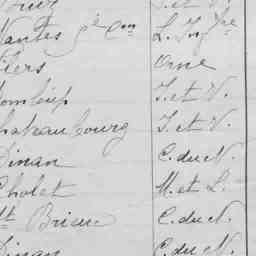 Nantes 5e Con L. Infre
Flers Orne
I. et V.
Chateaubourg I. et V.
Dinan C. du N.
Cholet M. et L.
St Brieuc C. du N.
Dinan C. du N.